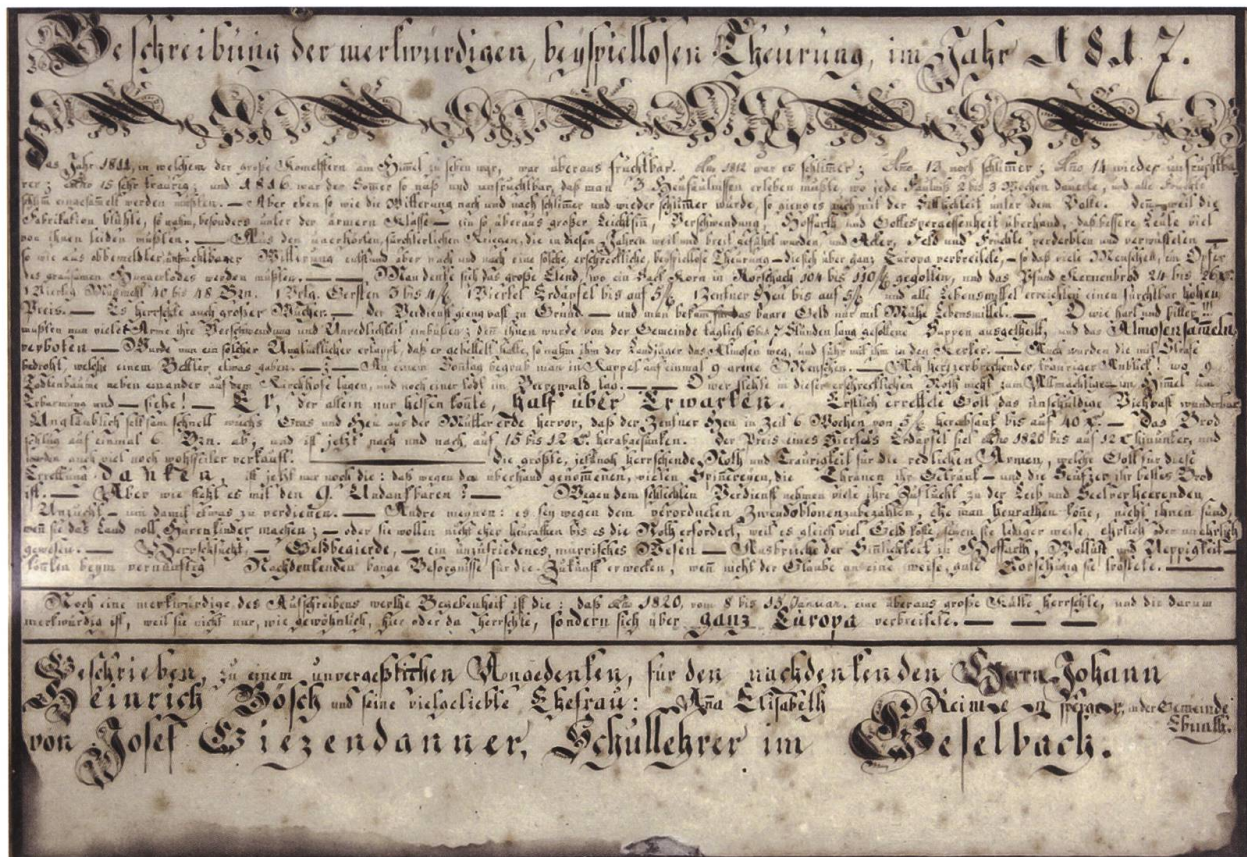 Beschreibung der merkwürdigen, beyspiellosen Theurung, im Jahr 1817.
Das Jahr 1811, in welchem der große Komettstern am Himel zu sehen war, war überaus fruchtbar. Ano 1812 war es schlimer; Ano 13 noch schlimer; Ano 14 wieder unfruchtba
rer; Ano 15 sehr traurig; und 1816 war der Somer so naß und unfruchtbar, daß man 3 Heufäulnissen erleben mußte, wo jede Fäulniß 2 bis 3 Wochen dauerte, und alle Früchte
eingesamelt werden mußten. — Aber eben so wie die Witterung nach und nach schlimer und wieder schlimer wurde, so gieng es auch mit der Sittlichkeit unter dem Volke. den weil die
Fabrikation blühte, so nahm, besonders unter der ärmern Klasse — ein so überaus großer Leichtsiñ, Verschwendung, Hoffarth und Gottesvergessenheit überhand, daß bessere Leute viel
von ihnen leiden mußten. — Aus den unerhörten, fürchterlichen Kriegen, die in diesen Jahren weit und breit geführt wurden, und Aeker, Feld und Früchte verderbten und verwüsteten —
so wie aus obbemeldter unfruchtbarer Witterung entstund aber nach und nach eine solche, erschreckliche, beyspiellose Theurung — die sich über ganz Europa verbreitete, — so daß viele Menschen, ein Opfer
des grausamen Hungertodes werden mußten. — Man denke sich das große Elend, wo ein Sack Korn in Rorschach 104 bis 110 f gegolten, und das Pfund Kernenbrod 24 bis 26
1 Vierlig Mußmehl 40 bis 48 Bzn. 1 Vrlg. Gersten 3 bis 4 f 1 Viertel Erdäpfel bis auf 5 f 1 Zentner Heu bis auf 5 f und alle Lebensmittel erreichten einen furchtbar hohen
Preis. — Es herrschte auch großer Wucher. — der Verdienst gieng vast zu Grund — und man bekam für das baare Geld nur mit Mühe Lebensmittel. — O wie hart und bitter
mußten nun viele Arme ihre Verschwendung und Unredlichkeit einbüßen; deñ ihnen wurde von der Gemeinde täglich 6 bis 7 Stunden lang gesottene Suppen ausgetheilt, und das Almosensameln
verboten — Wurde nun ein solcher Unglücklicher ertappt, daß er gebettelt hatte, so nahm ihm der Landjäger das Almosen weg, und führt mit ihm in den Kerker. — Auch wurden die mit Strafe
bedroht, welche einem Bettler, etwas gaben. — — An einem Sontag begrub man in Kappel auf einmal 9 arme Menschen. — Ach herzerbrechender, trauriger Anblick! wo 9
Todtenbäume neben einander auf dem Kirchhofe lagen, und noch einer todt im Beerenwald lag. — O wer flehte in dieser erschrecklichen Noth nicht zum Allmächtigen im Himel um
Erbarmung und — siehe! — Er, der allein nur helfen konte, half über Erwarten. Erstlich errettete Gott das unschuldige Vieh vast wunderbar
Unglaublich seltsam schnell wuchs Gras und Heu aus der Mutter erde hervor, daß der Zentner Heu in Zeit 6 Wochen von 5 f herabsank bis auf 40 x. — Das Brod
schlug auf einmal 6 Bzn. ab, und ist jetzt nach und nach auf 15 bis 12 x. herabgesunken. der Preis eines Viertels Erdäpfel fiel Ano 1820 bis auf 12 x hinunter, und
wurden auch viel noch wohlfeiler verkauft. Die größte, jetzt noch herrschende Noth und Traurigkeit für die redlichen Armen, welche Gott für diese
Errettung danken, ist jetzt nur noch die: daß wegen der überhand genomenen, vielen Spinereyen, die Thränen ihr Getränk — und die Seufzer ihr bestes Brod
ist. — Aber wie steht es mit den 9. Undankbaren? — Wegen dem schlechten Verdienst nehmen viele ihre Zuflucht zu der Leib und Seel verheerenden
Unzucht — um damit etwas zu verdienen. — Andre meinen: es sey wegen dem verordneten Zwendoblonen zu bezahlen, ehe man heurathen köne, nicht ihnen sünd,
weñ sie das Land voll Hurenkinder machen; — oder sie wollen nicht eher heurathen bis es die Noth erfordert, weil es gleich viel Geld koste, seyen sie lediger weise, ehrlich oder unehrlich
gewesen. — Herrschsucht, — Geldbegierde, — ein unzufriedenes, murrisches Wesen — Ausbrüche der Siñlichkeit in Hoffarth, Wollust und Ueppigkeit —
könten beym vernünftig Nachdenkenden bange Besorgnisse für die Zukunft erwecken, weñ nicht der Glaube an eine weise, gute Vorsehung sie tröstete. —
Noch eine merkwürdige, des Aufschreibens werthe Begebenheit ist die: daß Ano 1820, vom 8 bis 15 Januar. eine überaus große Kälte herrschte, und die darum
merkwürdig ist, weil sie nicht nur, wie gewöhnlich, hier oder da herrschte, sondern sich über ganz Europa verbreitete. — — —
Beschrieben, zu einem unvergeßlichen Angedenken, für den nachdenkenden Herrn Johann
Heinrich Bösch und seine vielgeliebte Ehefrau: Aña Elisabeth in der Gemeinde
Ebnath.
von Josef Giezendanner, Schullehrer im Geselbach.